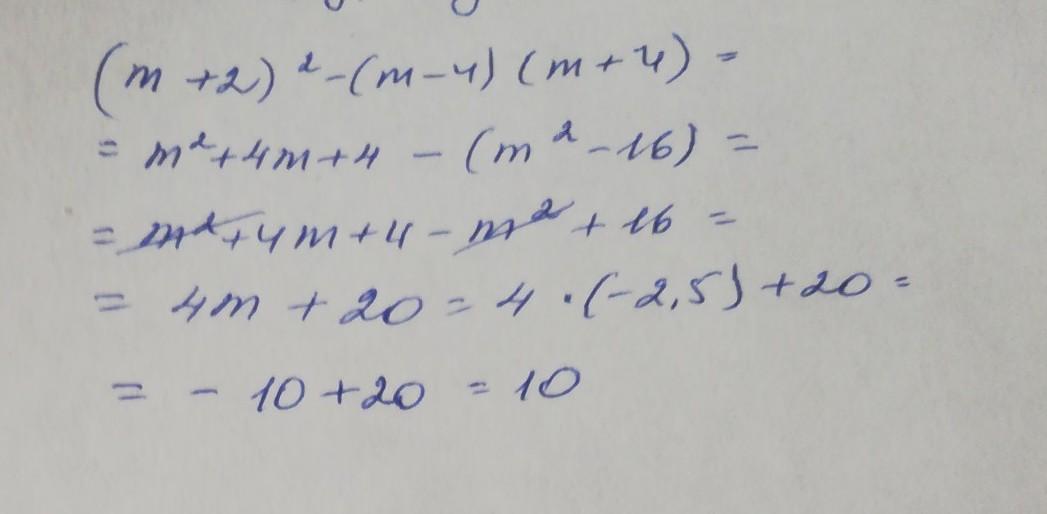 (m+2)²-(m-4)(m+4)=
=m²+4m+4-(m²-16)=
=m²+4m+4-m²+16=
=4m+20=4·(-2,5)+20=
=-10+20=10